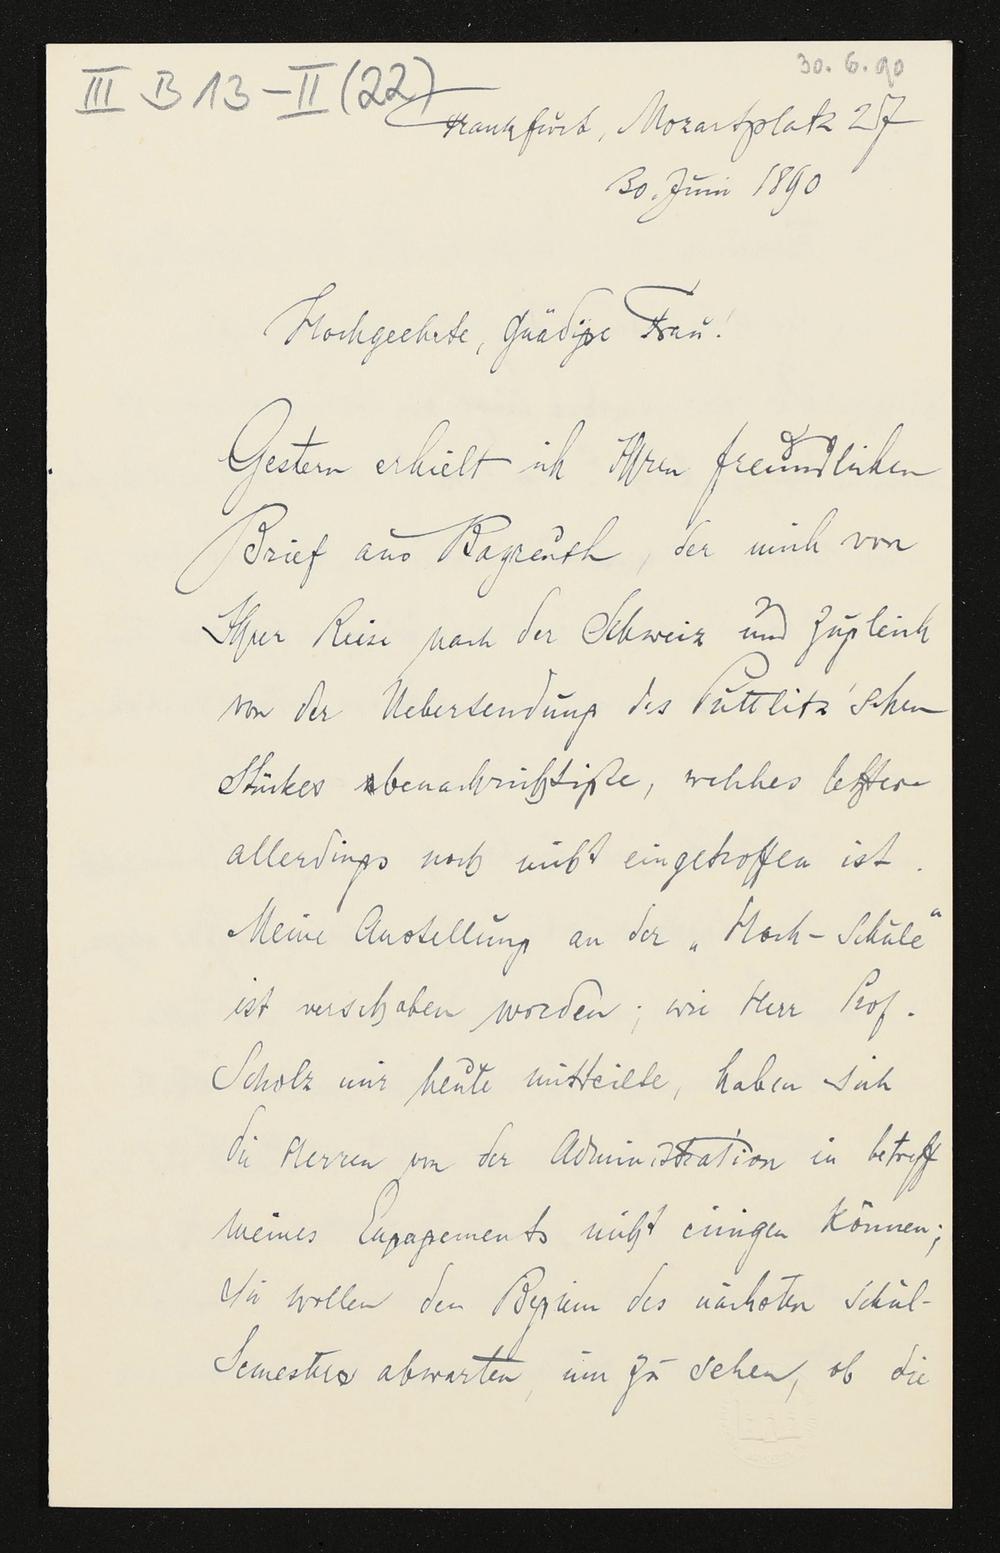 III B 13-II (22)
30. 6. 90
Frankfurt, Mozartplatz 27
30. Juni 1890
Hochgeehrte, gnädige Frau!
Gestern erhielt ich Ihren freundlichen
Brief aus Bayreuth, der mich von
Ihrer Reise nach der Schweiz und zugleich
von der Uebersendung des Puttlitz'schen
Stückes benachrichtigte, welches letztere
allerdings noch nicht eingetroffen ist.
Meine Anstellung an der „Hoch-Schule“
ist verschoben worden; wie Herr Prof.
Scholz mir heute mitteilte, haben sich
die Herren von der Administration in betreff
meines Engagements nicht einigen können;
sie wollen den Beginn des nächsten Schul-
Semesters abwarten, um zu sehen, ob die